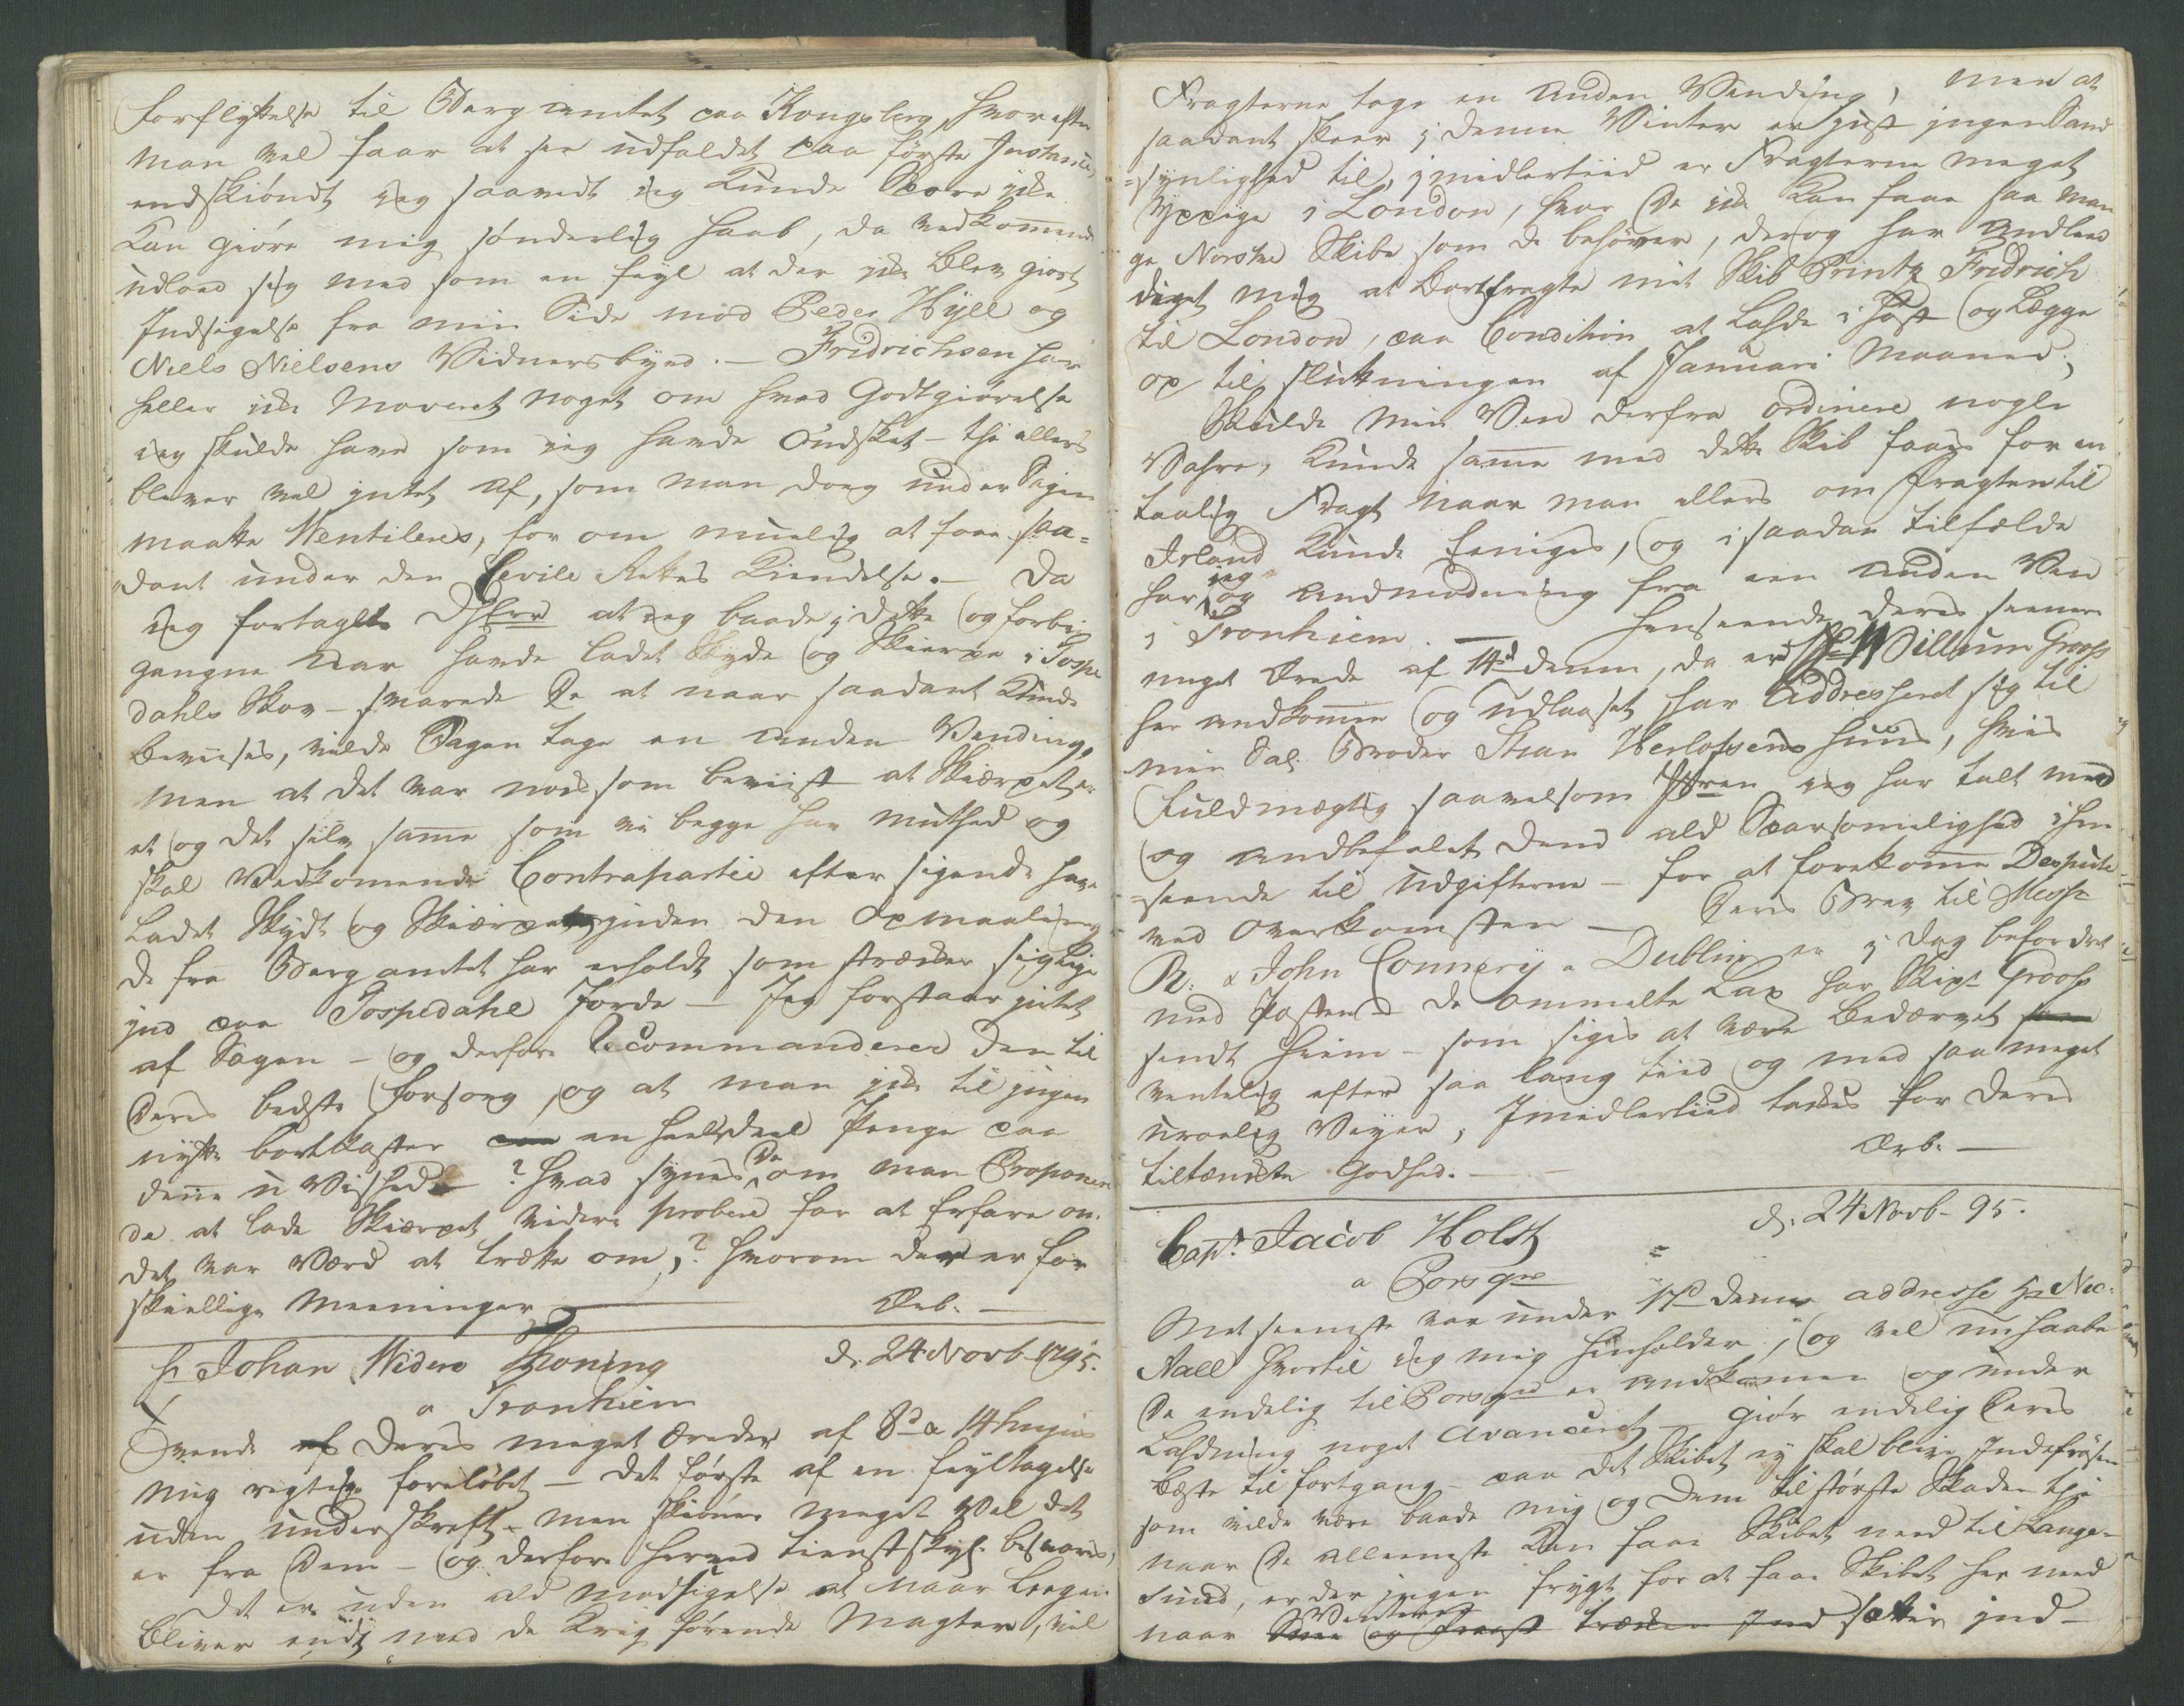 forflyttelse til Bergamtet paa Kongsberg, hvorefter
man vel faar at see udfaldet paa første Instance,
endskiöndt jeg saavidt jeg kunde Spore icke
kan giöre mig sönderlig haab, da vedkommende
udloed sig med som en feyl at der icke blev giort
Indsigelse fra min Side mod Peder Hyell og
Niels Nielsens Vidnersbyrd. – Fridrichsen har
heller icke Moveret noget om hvad Godtgiörelse
jeg skulde have som jeg havde Öndsket – thi ellers
bliver vel intet af, som man dog under Sagen
maatte Ventileres, for om muelig at faae saa=
dant under den Civile Rettes Kiendelse. – Da
jeg fortaglte at jeg baade i dette og forbi
gangne Aar havde ladet Skyde og Skierpe i Gospe
dahls Skov – svarede De at naar saadant kunde
beviises, vilde Sagen tage en anden Vending,
men at det var nok som beviist at Skiærpet er
et og det selv samme som vi begge har muthed og
skal Vedkomende Contrapartie efter sigende have
ladet Skydt og Skiærpet inden den Opmaaling
de fra Bergamtet har erholdt som strækker sig lige
ind paa Gospedahl Jorde – Jeg forstaar intet
af Sagen – og derfore Recommanderer den til
Deres bedste forsorg, og at man icke til ingen
nytte bortkaster en heel deel Penge paa
denne u Vished – ? hvad synes De om man Propone
de at lade Skiærpet videre probere for at Erfare om
det var Værd at trætte om,? hvorom der er for
skiellige Meeninger – Ærb. –
Hr Johan Widero Thoning d. 24 Novb 1795.
a Tronhiem
Tvende af Deres meget Ærede af 8d & 14 hujus
mig rigtig foreløbet – det første af en feyltagelse
uden underskreft – men skiönner meget vel det
er fra Dem – og derfore herved tienstskyl. besvares,
det er uden ald modsigelse at naar Krigen
bliver endt med de Krig førende Magter, vil
Fragterne tage en anden Vending, men at
saadant skeer i denne Vinter er just ingen Sand
=synlighed til, imidlertiid er Fragterne meget
Yppige i London, hvor De icke kan faae saa man
ge Norske Skibe som de behøver, derog har andlee
diget mig at bortfragte mit Skib Printz Fridrich
til London, paa Condition at ladde i høst og Legge
op til sluttningen af Januari Maaned;
Skulde min Ven derfra ordinere nogle
Vahre, kunde samme med dette Skib faaes for en
taalig Fragt naar man ellers om fragten til
Irland kunde Eeniges, og i saadan tilfælde
har jeg og andmodning fra een anden Ven
i Tronhiem. – henseende deres seenere
meget Ærede af 14d denne, da er Sk. Willum Grooss
her andkommen og udlaaset har Addresseret sig til
min Sal. Broder Staan Herlofsens huus, hvis
fuldmægtig saavelsom jeg har talt med
og andbefalet dend ald Sparsomelighed i hen
seende til udgifterne – for at forekomme Despute
ved overkomsten – Deres Brev til Messr
R: & John Connery a Dublin er i dag befordret
med Posten – de ommelte Lax har Skipr Grooss
sendt hiem – som siges at være bedærvet
ventelig efter saa lang tiid og med saa meget
uroelig Veyer, Imidlertiid takkes for deres
tiltænckte Godhed. – Ærb. –
d. 24 Novb – 95.
Capt. Jacob Holst
a Porsgrd
Mit seeneste var under 17d denne addresse Hr Nic:
Aall hvortil jeg mig henholder, og vel nu haabe
De endelig til Porsgrd er andkommen og under
Ladning noget Avanceret – giør endelig Deres
beste til fortgang – paa det Skibet ey skal blive Indefrosen
som vilde være baade mig og dem til største Skade, thi
naar De allereneste kan faae Skibet need til Lange=
sund, er der ingen frygt for at faae Skibet her ned
naar Vinteren sætter ind –